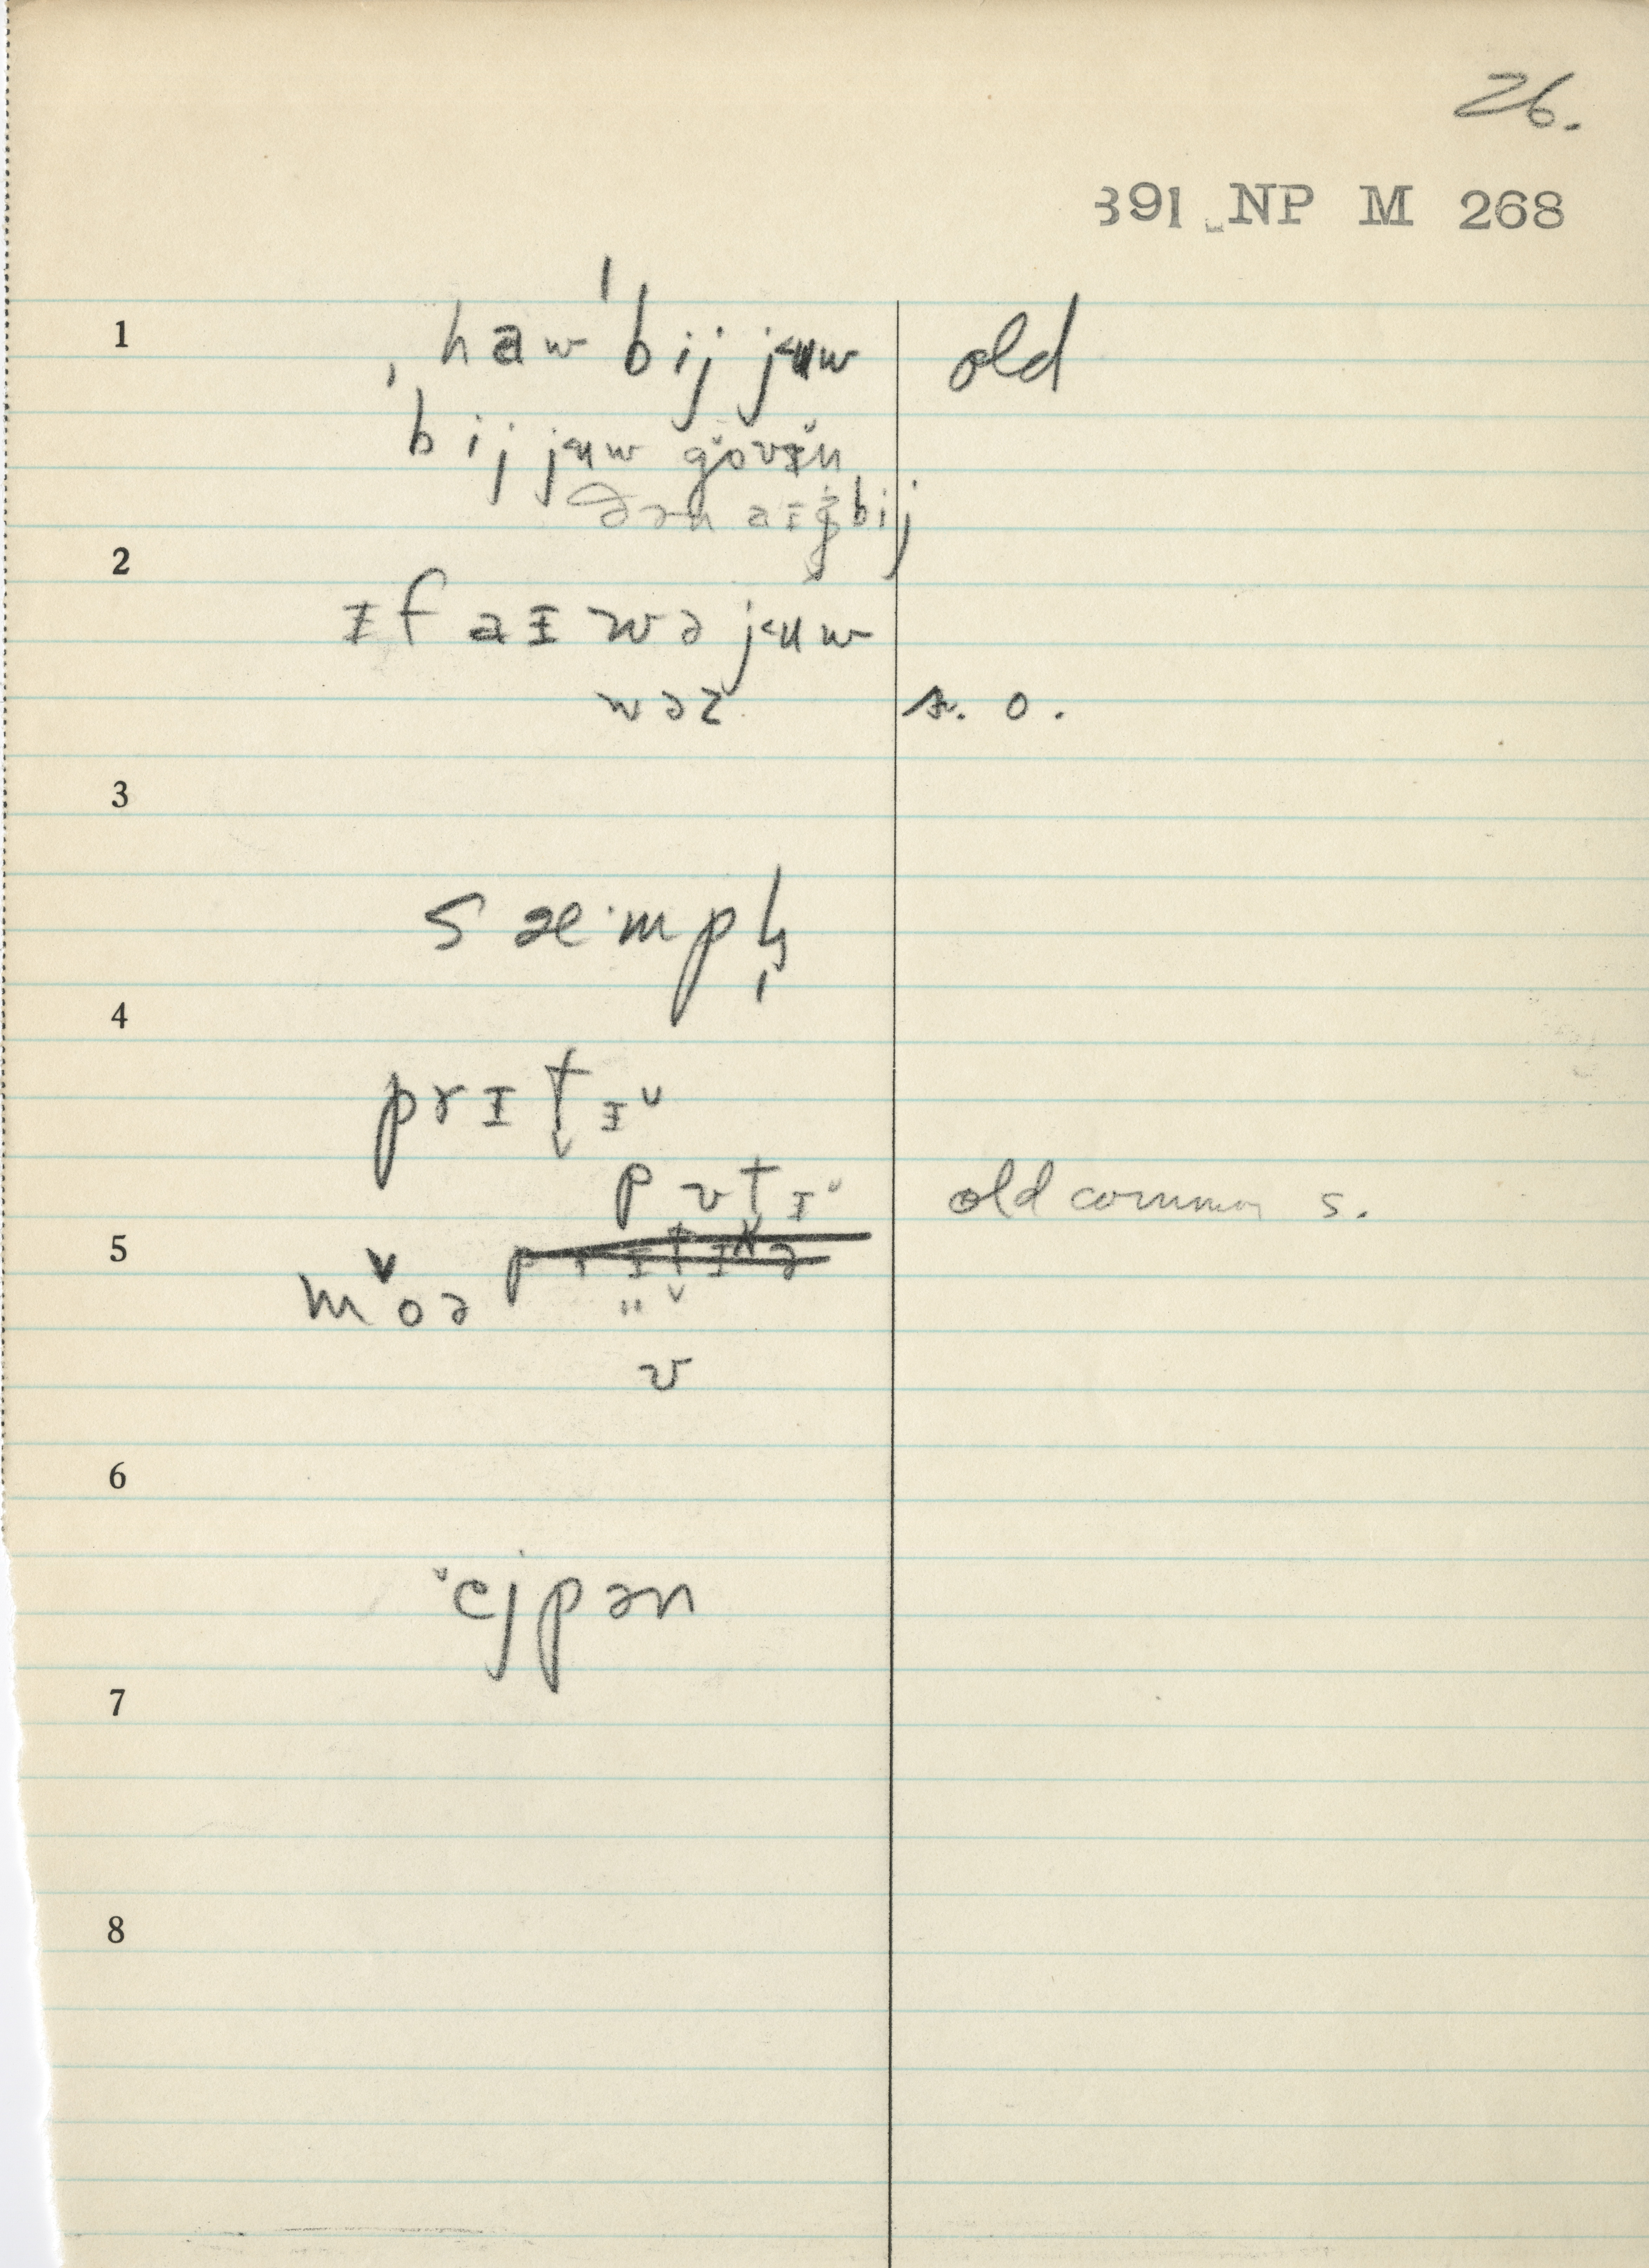 26.
391 NP M 268
1
ˌhaw ˈbij jᵾw old
ˈbij jᵾw govɪn
ðən aɪ bij
2
ɪf aɪ wə jᵾw
wəz s. o.
3
sæmpḷ
4
prɪt̬ɪ˅
pʊtɪ˅ old common s.
5
moə
ʊ
6
˅ejpən
7
8